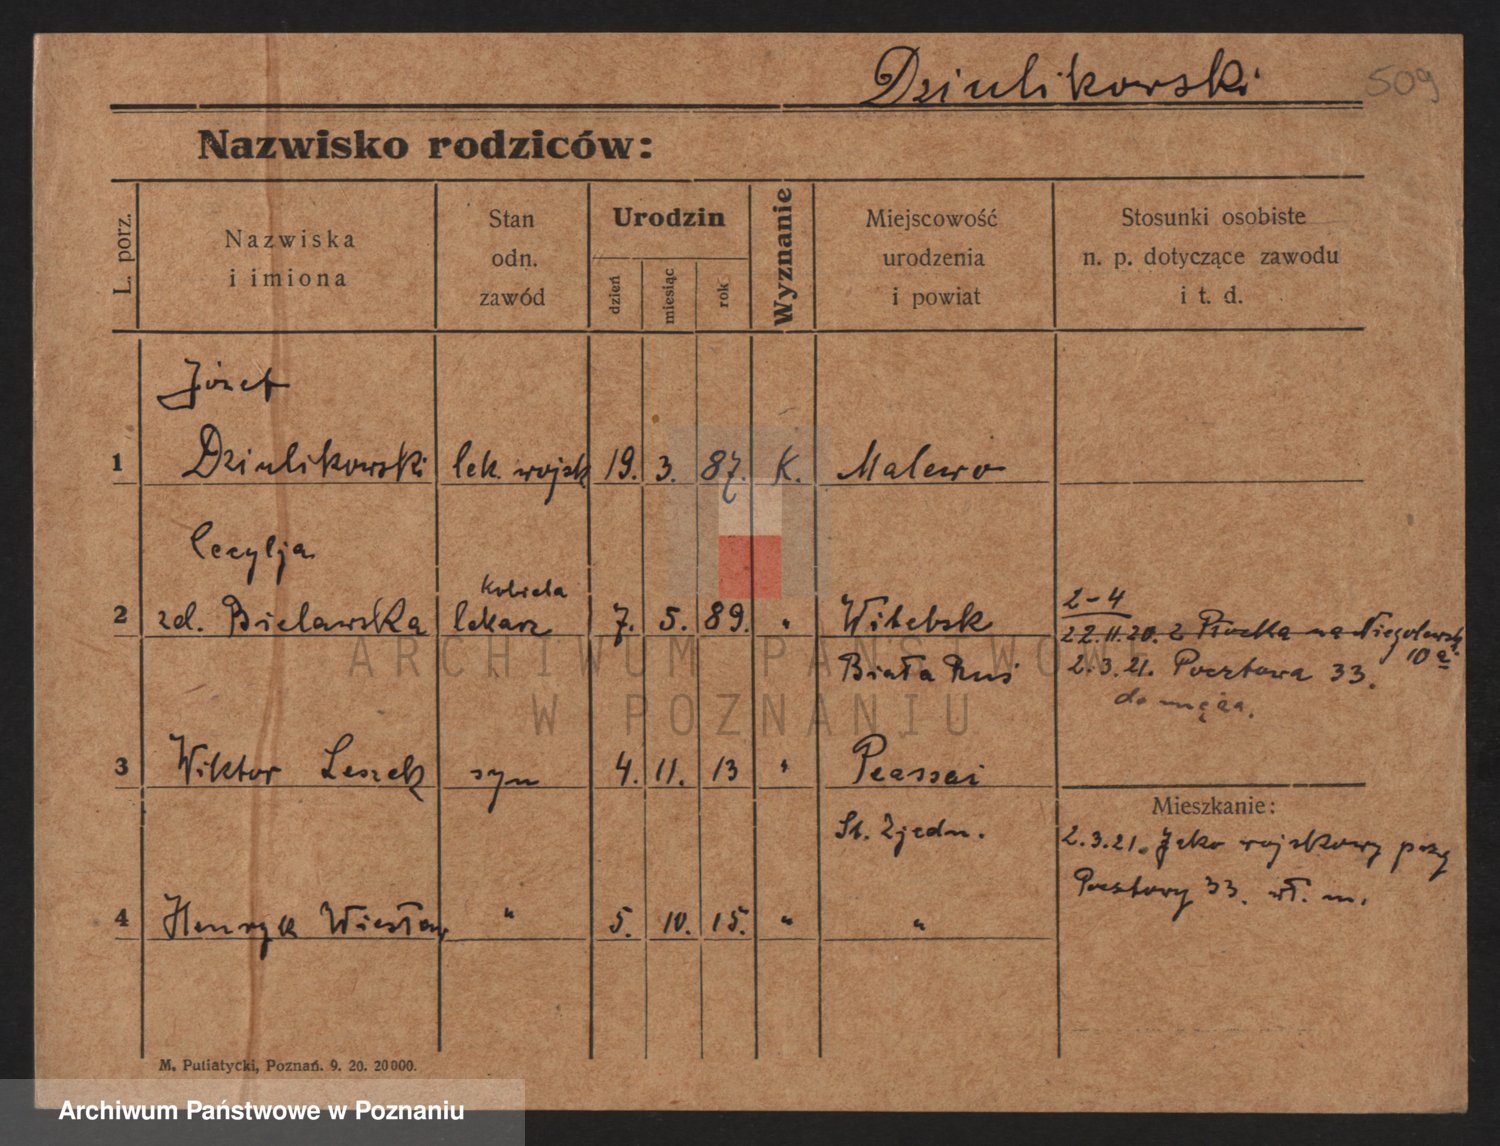 Dziulikowski 509
Nazwisko rodziców:
L. porz.
Nazwiska
i imiona
Stan
odn.
zawód
Urodzin
dzień
miesiąc
rok
Wyznanie
Miejscowość
urodzenia
i powiat
Stosunki osobiste
n. p. dotyczące zawodu
i t. d.
Józef
1 Dziulikowski lek. wojsk 19. 3. 87. K. Malewo
Cecylja
kobieta
2 zd. Bielawska lekarz 7. 5. 89. " Witebsk
Biała Ruś
2-4
22.11.20. z Płocka na Niegolewsk.
10 a
2.3.21. Pocztowa 33.
do męża.
3 Wiktor Leszek syn 4. 11. 13 "
St. Zjedn.
4 Henryk Wiesław " 5. 10. 15. " "
Mieszkanie:
2.3.21. Jako wojskowy przy
Pocztowy 33. wł. m.
M. Putiatycki, Poznań. 9. 20. 20000.
ARCHIWUM PAŃSTWOWE
W POZNANIU
Archiwum Państwowe w Poznaniu